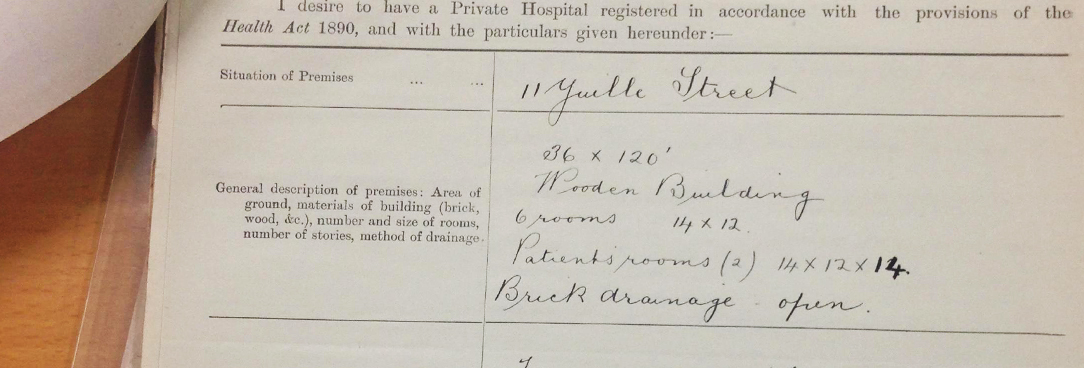 I desire to have a Private Hospital registered in accordance with the provisions of the
Health Act 1890, and with the particulars given hereunder:—
Situation of Premises ... ...
11 Yuille Street
General description of premises: Area of
ground, materials of building (brick,
wood, &c.), number and size of rooms,
number of stories, method of drainage.
36 x 120'
Wooden Building
6 rooms 14 x 12.
Patients rooms (2) 14 x 12 x 14.
Brick drainage - open.